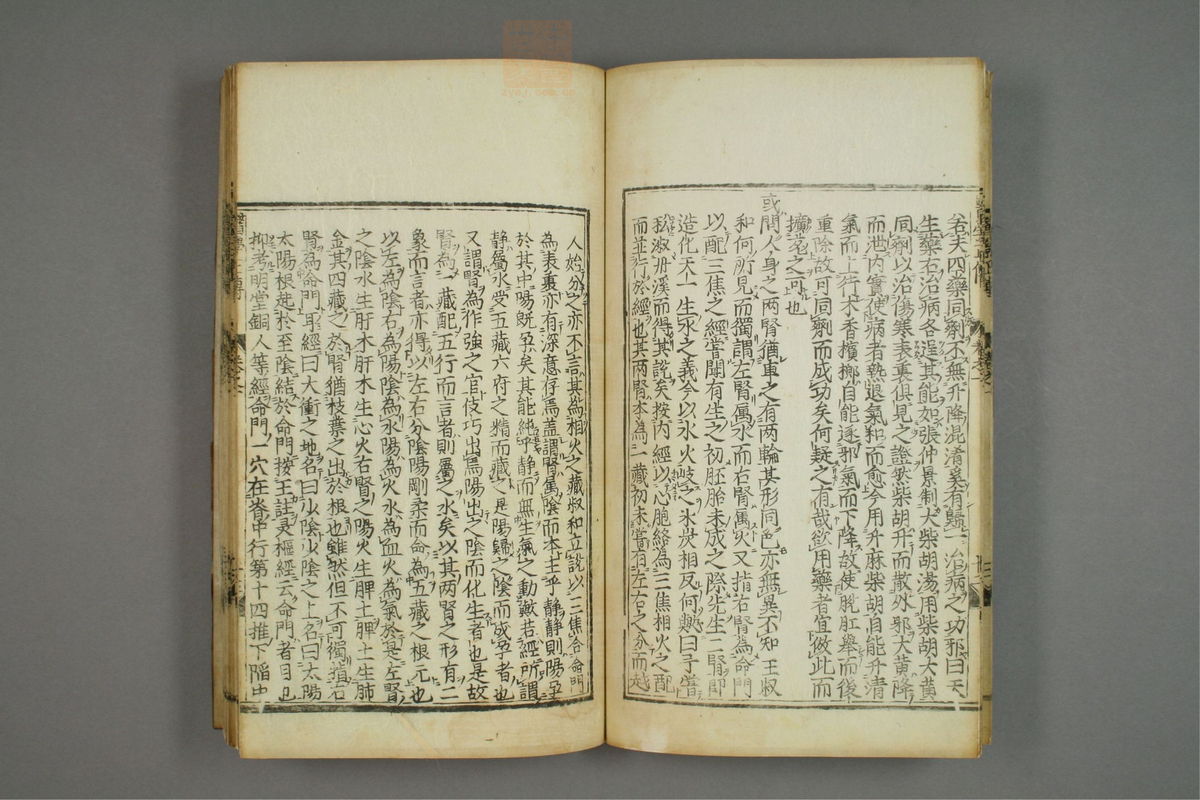 若夫四藥同劑不無升降混淆奚有歸一治病之功邪曰天
生藥石治病各逞其能如張仲景制大柴胡湯用柴胡大黄
同劑以治傷寒表裏俱見之證然柴胡升而散外邪大黄降
而泄内實使病者熱退氣和而愈今用升麻柴胡自能升清
氣而上行木香檳榔自能逐邪氣而下降故使脫肛舉而後
重除故可同劑而成功矣何疑之有哉欲用藥者宜倣此而
擴充之可也
或問人身之两腎猶車之有两輪其形同色亦無異不知王叔
和何所見而獨謂左腎属水而右腎属火又指右腎為命門
以配三焦之經嘗聞有生之初胚胎未成之際先生二腎即
造化天一生水之義今以水火歧之氷炭相反何歟曰予嘗
私淑丹溪而得其說矣按内經以心胞絡為三焦相火之配
而並行於經也其两腎本為一藏初未嘗有左右之分而越
人始分之亦不言其為相火之藏叔和立說以三焦合命門
為表裏亦有深意存焉蓋謂腎属陰而本主乎静静則陽孕
於其中陽既孕矣其能純乎静而無生氣之動歟若經所謂
静屬水受五藏六府之精而藏之是陽歸之陰而成孕者也
又謂腎為作強之官伎巧出焉陽出之陰而化生者也是故
腎為一藏配五行而言者則屬之水矣以其两腎之形有二
象而言者亦得以左右分陰陽剛柔而命為五藏之根元也
以左為陰右為陽陰為水陽為火水為血火為氣於是左腎
之陰水生肝木肝木生心火右腎之陽火生脾土脾土生肺
金其四藏之於腎猶枝葉之出於根也雖然但不可獨指右
腎為命門耳經曰大衝之地名曰少陰少陰之上名曰太陽
太陽根起於至陰結於命門按王註灵樞經云命門者目也
抑考明堂銅人等經命門一穴在脊中行第十四推下陷中